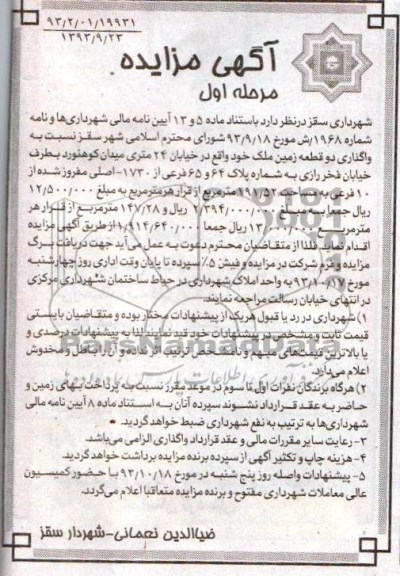 ۹۳/۲/۰۱/۱۹۹۳۱
۱۳۹۳/۹/۲۳
آگهی مزایده
مرحله اول
شهرداری سقز درنظر دارد باستناد ماده ۵ و ۱۳ آیین نامه مالی شهرداری‌ها و نامه
شماره ۱۹۶۸/ش مورخ ۹۳/۹/۱۸ شورای محترم اسلامی شهر سقز نسبت به
واگذاری دو قطعه زمین ملک خود واقع در خیابان ۲۴ متری میدان کوهنورد بطرف
خیابان فخر رازی به شماره پلاک ۶۴ و ۶۵ فرعی از ۱۷۳۰- اصلی مفروز شده از
۱۰ فرعی به مساحت ۱۹۱/۵۲ مترمربع از قرار هر مترمربع به مبلغ ۱۲/۵۰۰/۰۰۰
ریال جمعا به مبلغ ۲/۳۹۴/۰۰۰/۰۰۰ ریال و ۱۴۷/۲۸ مترمربع از قرار هر
مترمربع ۱۳/۰۰۰/۰۰۰ ریال جمعا ۱/۹۱۴/۶۴۰/۰۰۰ از طریق آگهی مزایده
اقدام نماید. فلذا از متقاضیان محترم دعوت به عمل می‌آید جهت دریافت برگ
مزایده و فرم شرکت در مزایده و فیش ۵٪ سپرده تا پایان وقت اداری روز چهارشنبه
مورخ ۹۳/۱۰/۱۷ به واحد املاک شهرداری در حیاط ساختمان شهرداری مرکزی
در انتهای خیابان رسالت مراجعه نمایند.
۱) شهرداری در رد یا قبول هر یک از پیشنهادات مختار بوده و متقاضیان بایستی
قیمت ثابت و مشخص در پیشنهادات خود قید نمایند لذا به پیشنهادات درصدی و
یا بالاترین قیمت‌های مبهم و نامشخص ترتیب اثر نداده و آن را باطل و مخدوش
اعلام می‌دارد.
۲) هرگاه برندگان نفرات اول تا سوم در موعد مقرر نسبت به پرداخت بهای زمین و
حاضر به عقد قرارداد نشوند سپرده آنان به استناد ماده ۸ آیین نامه مالی
شهرداری‌ها به ترتیب به نفع شهرداری ضبط خواهد گردید.
۳- رعایت سایر مقررات مالی و عقد قرارداد واگذاری الزامی می‌باشد.
۴- هزینه چاپ و تکثیر آگهی از سپرده برنده مزایده برداشت خواهد گردید.
۵- پیشنهادات واصله روز پنج شنبه در مورخ ۹۳/۱۰/۱۸ با حضور کمیسیون
عالی معاملات شهرداری مفتوح و برنده مزایده متعاقبا اعلام می‌گردد.
ضیاالدین نعمانی-شهردار سقز
ParsNamadData